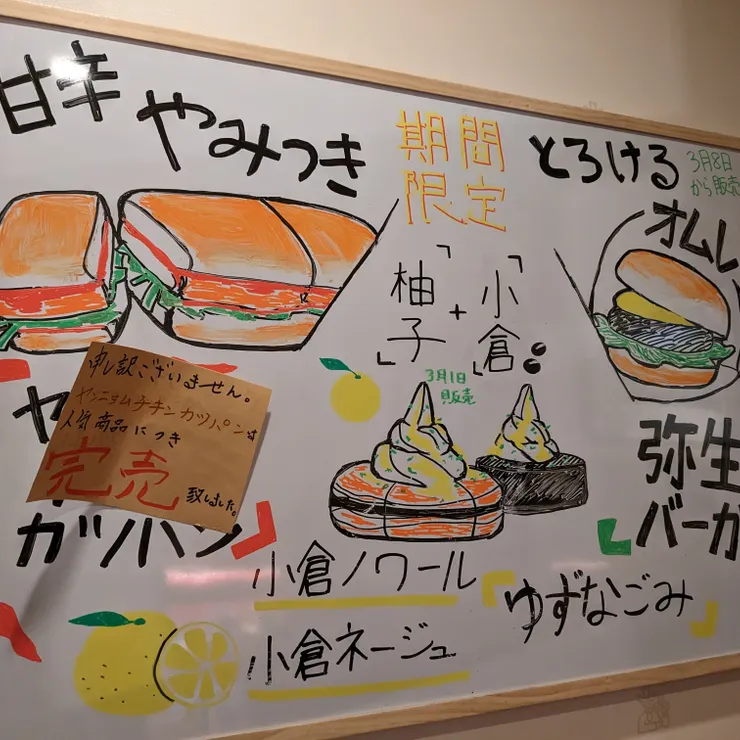 甘辛
やみつき
申し訳ございません。
ヤンニョムチキンカツパンは
人気商品につき
完売
致しました。
ヤ
カツパン』
期間
限定
「小倉
+
柚子」
3月1日
販売
小倉ノワール
小倉ネージュ
「ゆずなごみ」
とろける
3月8日
から販売
オムレ
弥生
バーガ